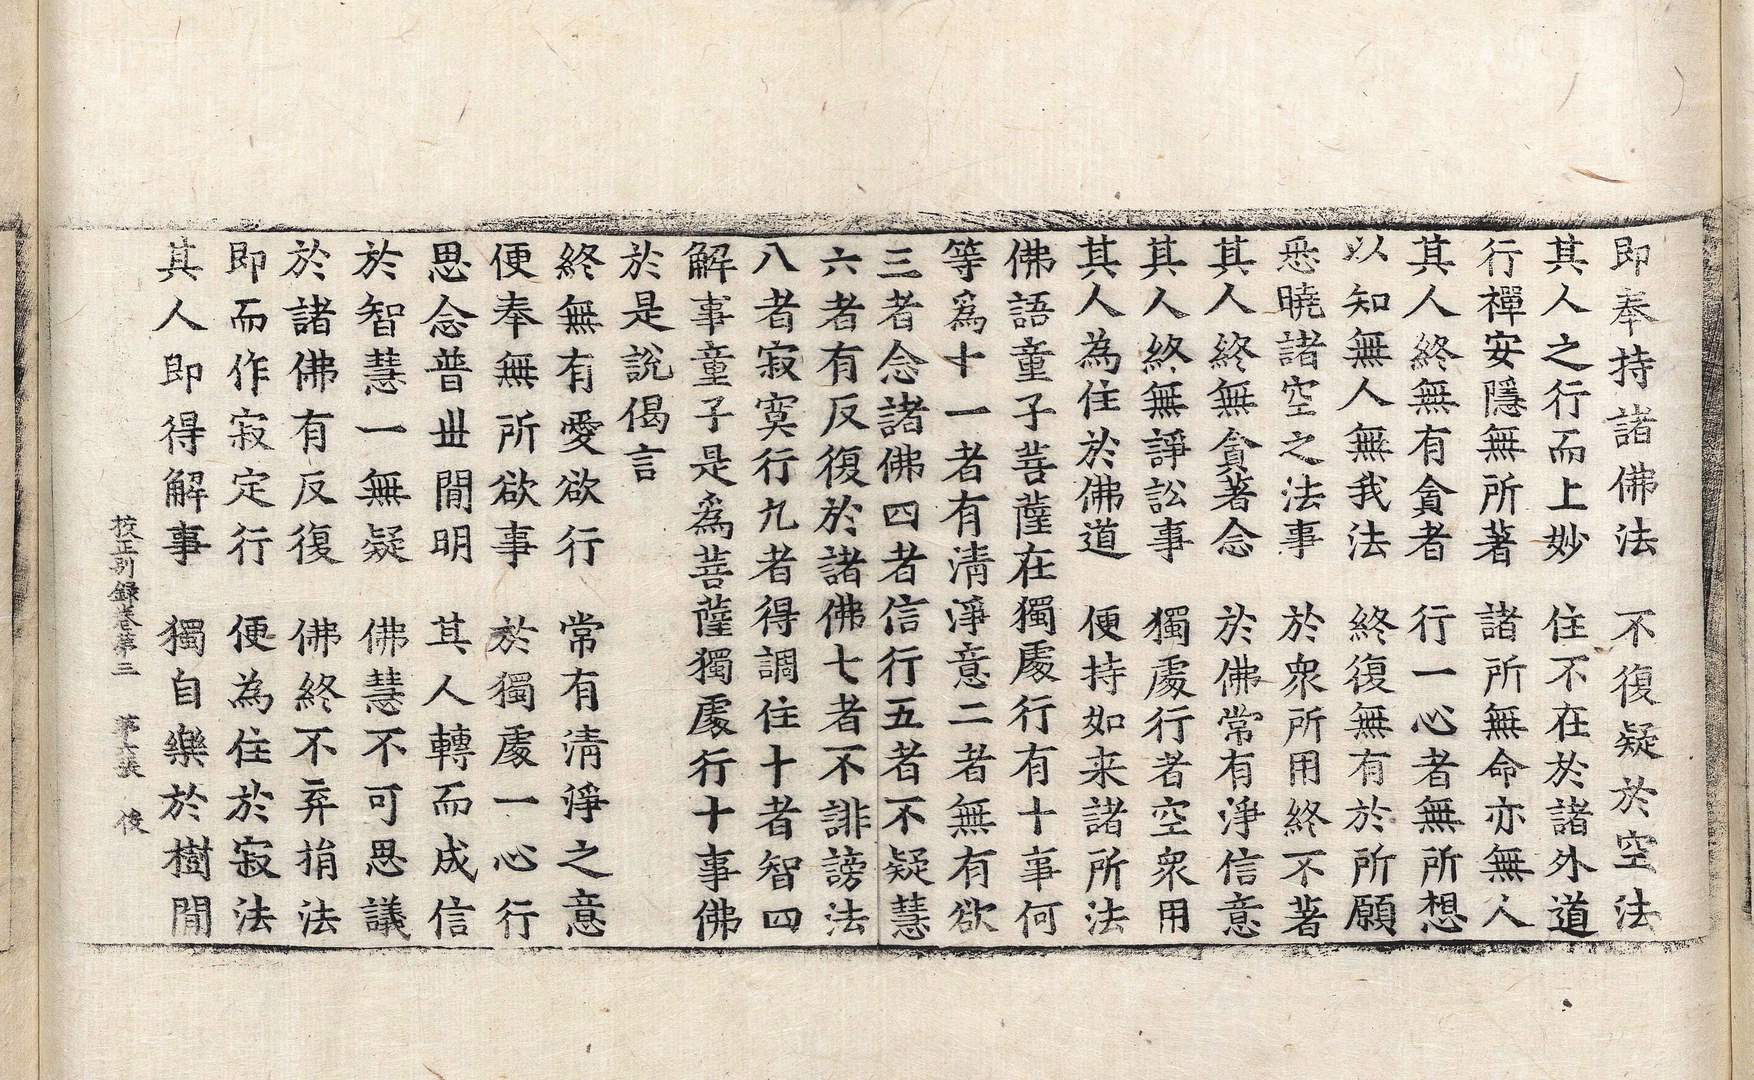 即奉持諸佛法　不復疑於空法
其人之行而上妙　住不在於諸外道
行禪安隱無所著　諸所無命亦無人
其人終無有貪者　行一心者無所想
以知無人無我法　終復無有於所願
悉曉諸空之法事　於衆所用終不著
其人終無貪著念　於佛常有淨信意
其人終無諍訟事　獨處行者空衆用
其人為住於佛道　便持如来諸所法
佛語童子菩薩在獨處行有十事何
等為十一者有淸淨意二者無有欲
三者念諸佛四者信行五者不疑慧
六者有反復於諸佛七者不誹謗法
八者寂寞行九者得調住十者智四
解事童子是為菩薩獨處行十事佛
於是說偈言
終無有愛欲行　常有淸淨之意
便奉無所欲事　於獨處一心行
思念普世閒明　其人轉而成信
於智慧一無疑　佛慧不可思議
於諸佛有反復　佛終不弃捐法
即而作寂定行　便為住於寂法
其人即得解事　獨自樂於樹閒
校正別録卷第三　第六张　俊